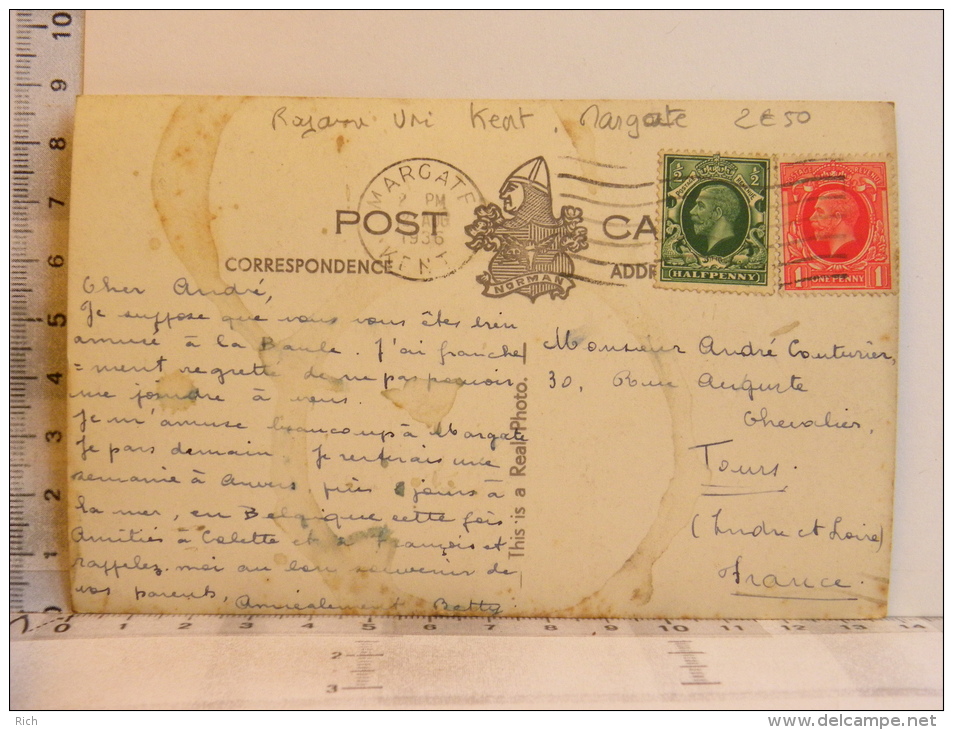 Royaume Uni Kent. Margate 2€50
MARGATE
2 PM
1936
KENT
POST CA
NORMAN
CORRESPONDENCE ADDR
½ ½
HALFPENNY
1 ONE PENNY 1
Cher André,
Je suppose que vous vous êtes bien
amusé à la Baule. J'ai franche
=ment regretté de ne pas pouvoir
me joindre à vous.
Je m'amuse beaucoup à Margate
Je pars demain. Je resterais une
semaine à Anvers puis jours à
la mer, en Belgique cette fois
Amitiés à Colette et à François et
rappelez-moi au bon souvenir de
vos parents, Amicalement Betty.
This is a Real Photo.
Monsieur André Couturier,
30, Rue Auguste
Chevalier,
Tours.
(Indre et Loire)
France.
10
9
8
7
6
5
4
3
2
1
0
0 1 2 3 4 5 6 7 8 9 10 11 12 13 14
2
3
Rich
www.delcampe.net